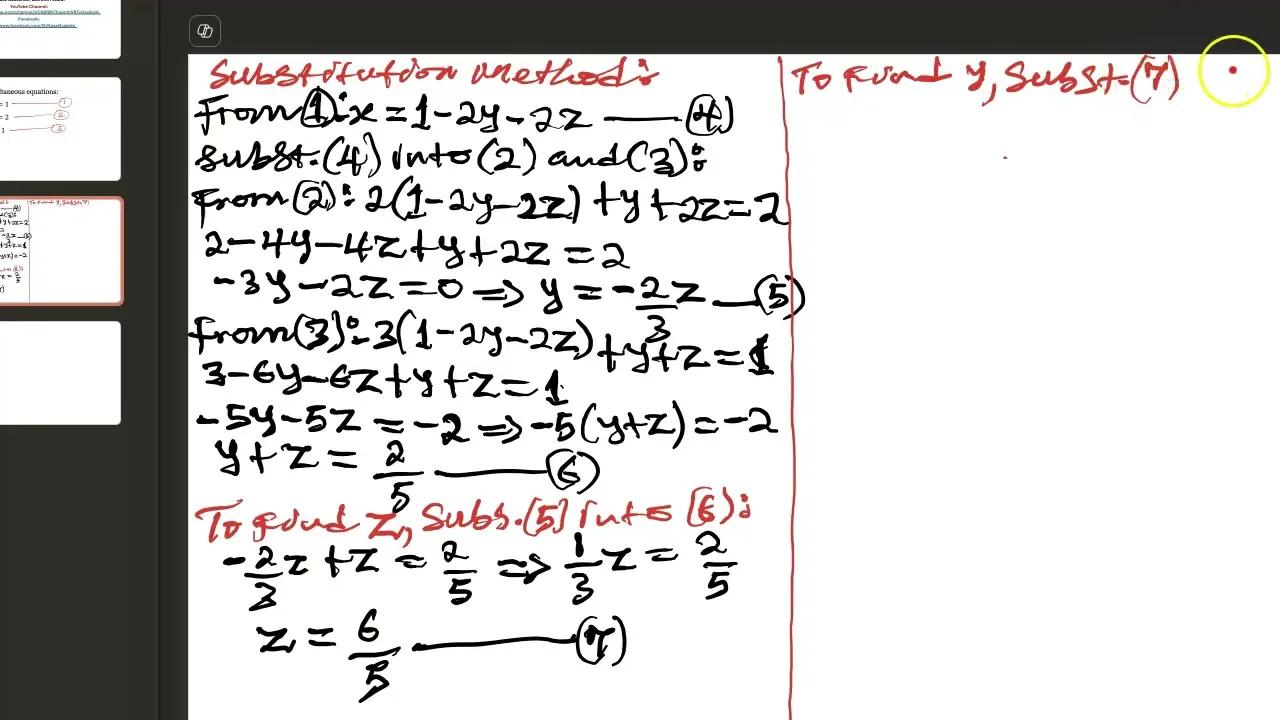 YouTube Channel:
Facebook:
taneous equations:
= 1 (1)
= 2 (2)
1 (3)
Substitution Method:
From (1): x = 1 - 2y - 2z —— (4)
Subst. (4) into (2) and (3):
From (2): 2(1 - 2y - 2z) + y + 2z = 2
2 - 4y - 4z + y + 2z = 2
-3y - 2z = 0 ⇒ y = -2/3 z — (5)
From (3): 3(1 - 2y - 2z) + y + z = 1
3 - 6y - 6z + y + z = 1
-5y - 5z = -2 ⇒ -5(y + z) = -2
y + z = 2/5 —— (6)
To find z, Subs. (5) into (6):
-2/3 z + z = 2/5 ⇒ 1/3 z = 2/5
z = 6/5 —— (7)
To find y, Subst. (7)